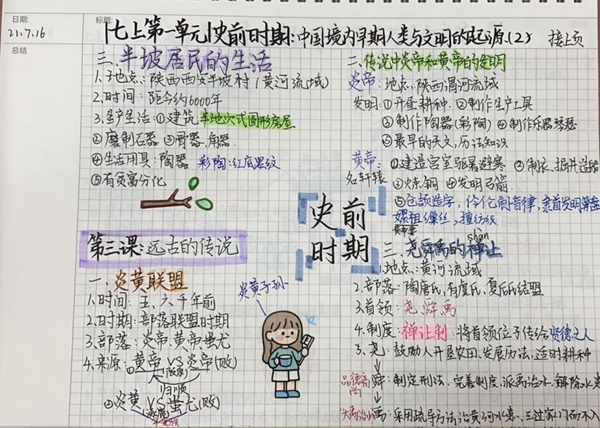 日期:
21.7.16
标题:
七上第一单元史前时期:中国境内早期人类与文明的起源.(2) 接上页
三、半坡居民的生活
1.地点:陕西西安半坡村(黄河流域)
2.时间:距今约6000年
3.生产生活:①建筑 半地穴式圆形房屋
②磨制石器 ③骨器、角器
④生活用具:陶器 彩陶:红底黑纹
⑤有贫富分化
第三课:远古的传说
一.炎黄联盟
1.时间:五、六千年前
2.时期:部落联盟时期
3.部落:炎帝黄帝蚩尤
4.来源:黄帝VS炎帝(败)
归顺
②炎黄VS蚩尤(败)
史前时期
炎黄子孙
二.传说中炎帝和黄帝的发明
炎帝:地点:陕西渭河流域
发明:①开垦耕种 ②制作生产工具
③制作陶器(彩陶) ④制作乐器琴瑟
⑤最早的天文,历法知识
黄帝:①建造宫室避寒暑 ②制衣、挖井造船
名轩辕
③炼铜 ④发明弓箭
⑤仓颉造字,伶伦制音律,隶首发明算盘
嫘祖缫丝,擅纺织
shàn
三、尧舜禹的禅让
1.地点:黄河流域
2.部落:陶唐氏,有虞氏,夏后氏结盟
3.首领:尧舜禹
4.制度:禅让制 将首领位子传给贤德之人
5.尧:鼓励人开垦农田,发展历法,适时耕种
舜:制定刑法,完善制度,派禹治水,解除水患
禹:采用疏导方法治黄河水患,三过家门而不入